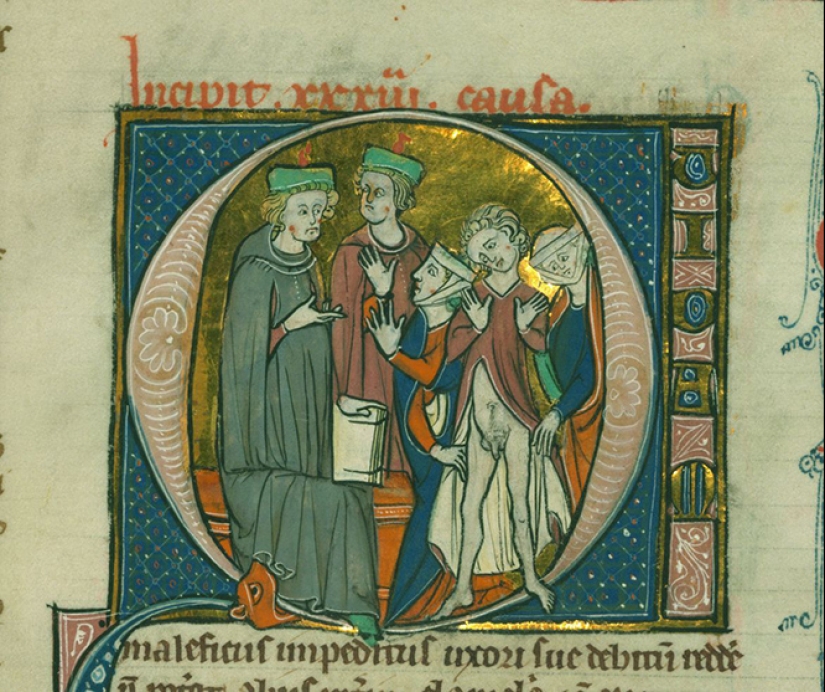 Incipit. xxxiii. causa.
QUIDAM
maleficiis impeditus uxori sue debitū reddē